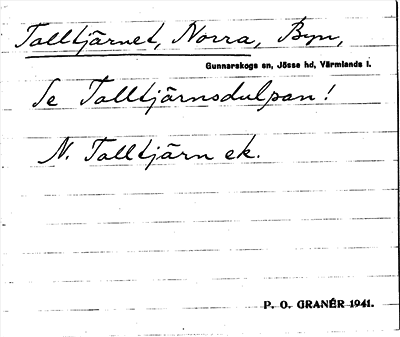 Talltjärnet, Norra, Byn,
Gunnarskogs sn, Jösse hd, Värmlands l.
Se Talltjärnsdulpan!
N. Talltjärn ek.
P. O. GRANÉR 1941.